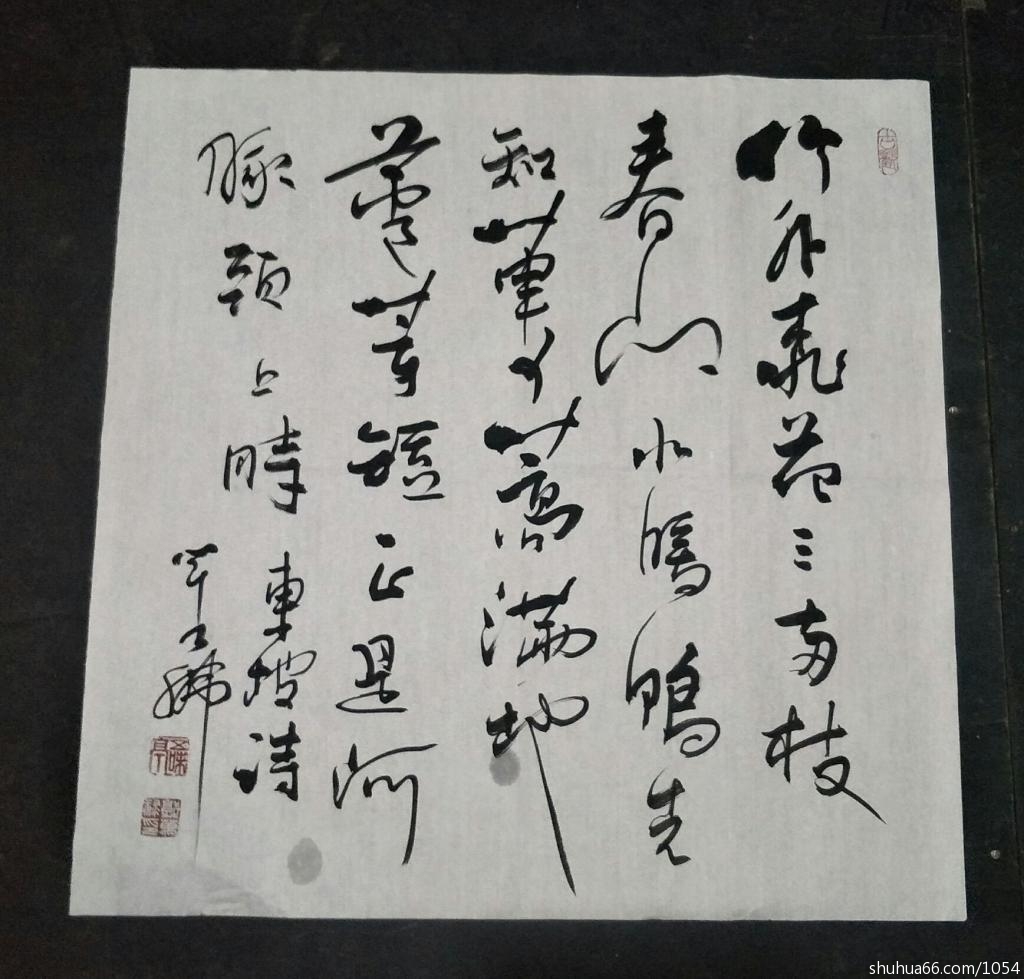 竹外桃花三両枝
春江水暖鴨先
知蔞蒿滿地
蘆芽短正是河
豚上時東坡詩
shuhua66.com/1054